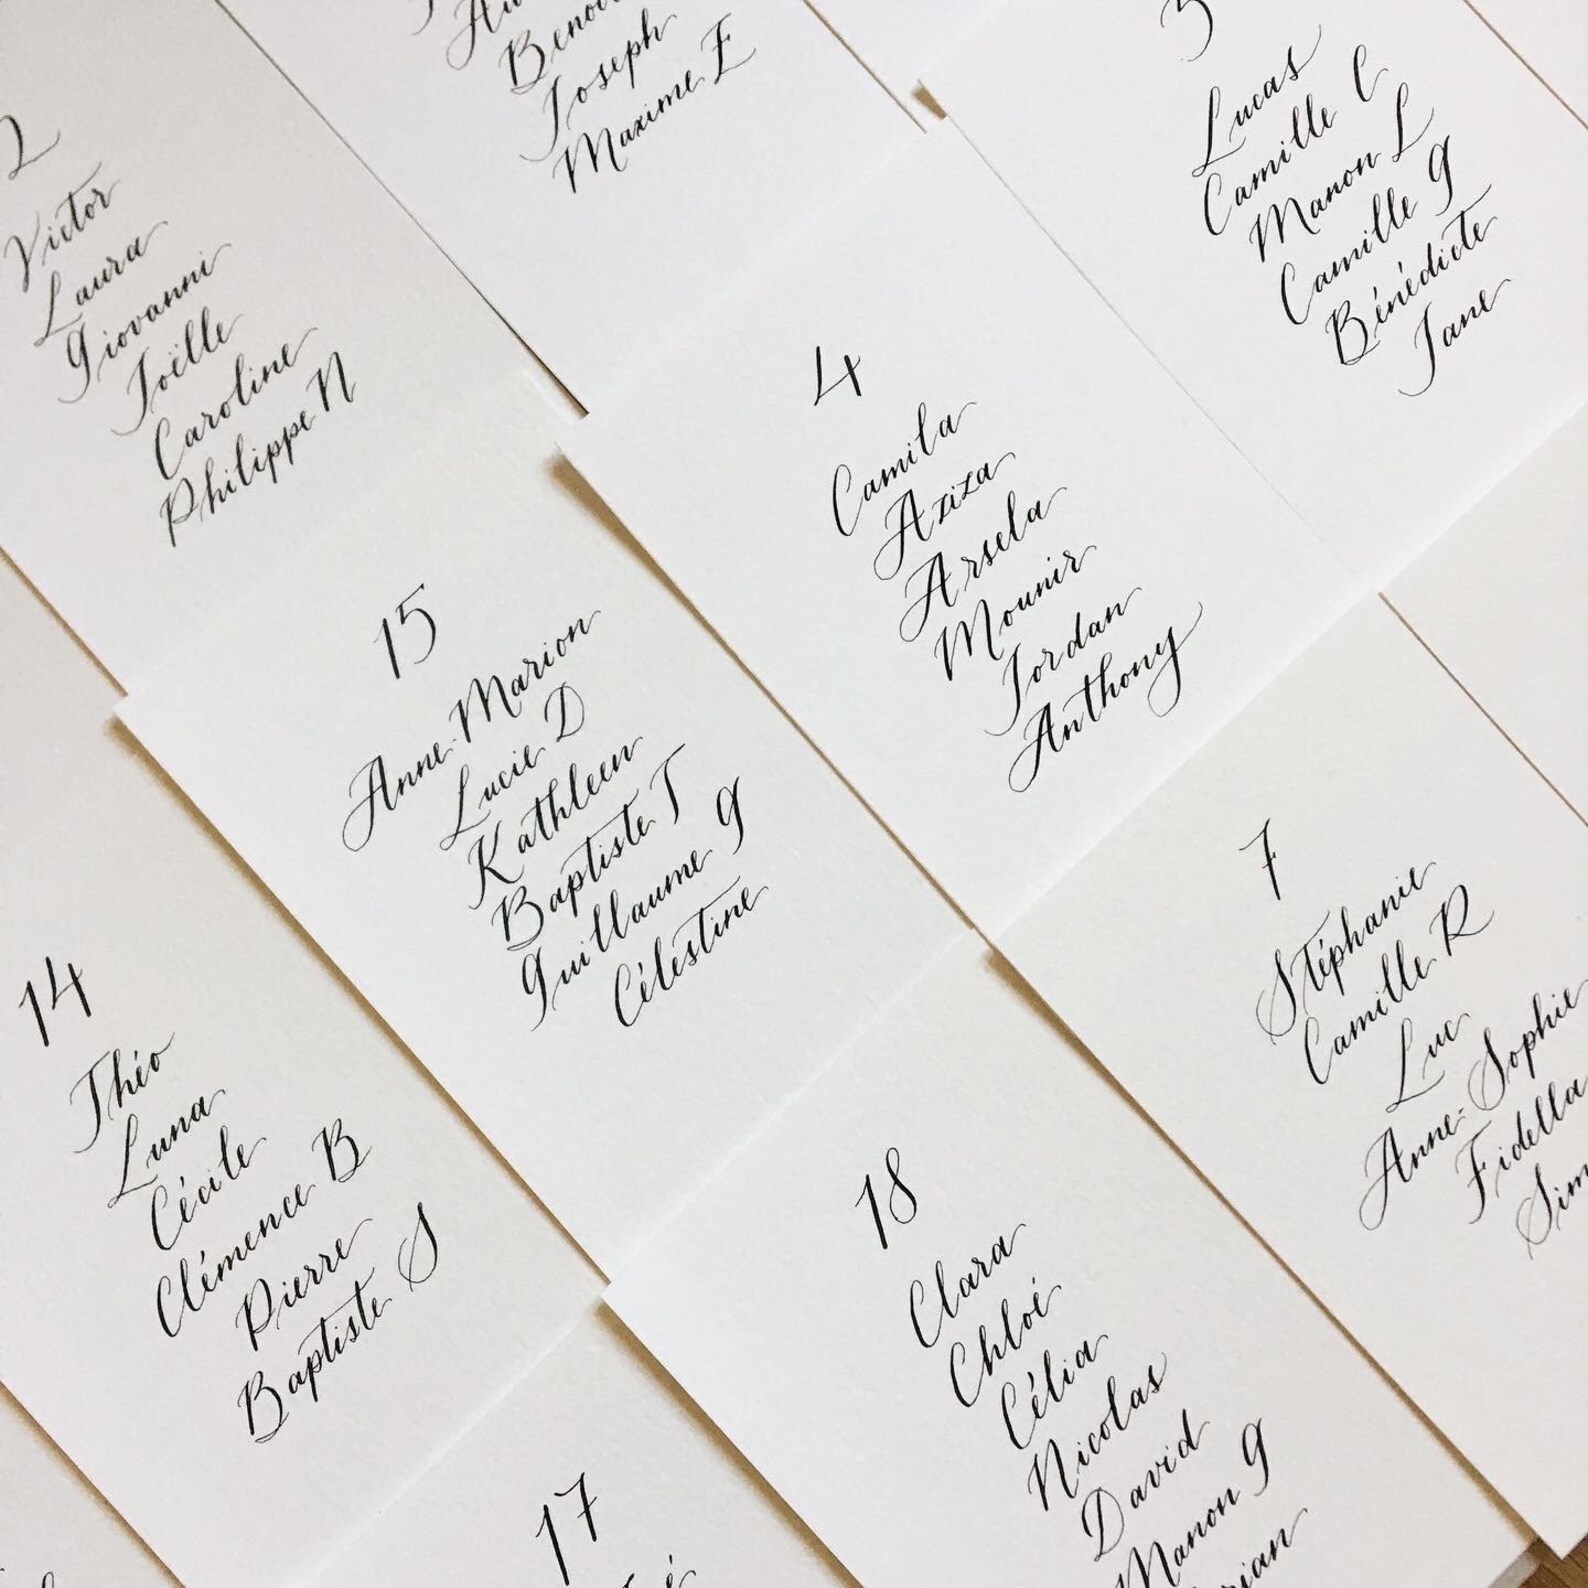 2
Victor
Laura
Giovanni
Joëlle
Caroline
Philippe N
Joseph
Maxime E
Lucas
Camille C
Manon L
Camille G
Bénédicte
Jane
4
Camila
Aziza
Arsela
Mounir
Jordan
Anthony
15
Anne-Marion
Lucie D
Kathleen
Baptiste T
Guillaume G
Célestine
7
Stéphanie
Camille R
Luc
Anne-Sophie
Fidella
14
Théo
Luna
Cécile
Clémence B
Pierre
Baptiste S
18
Clara
Chloé
Célia
Nicolas
David
Manon G
17